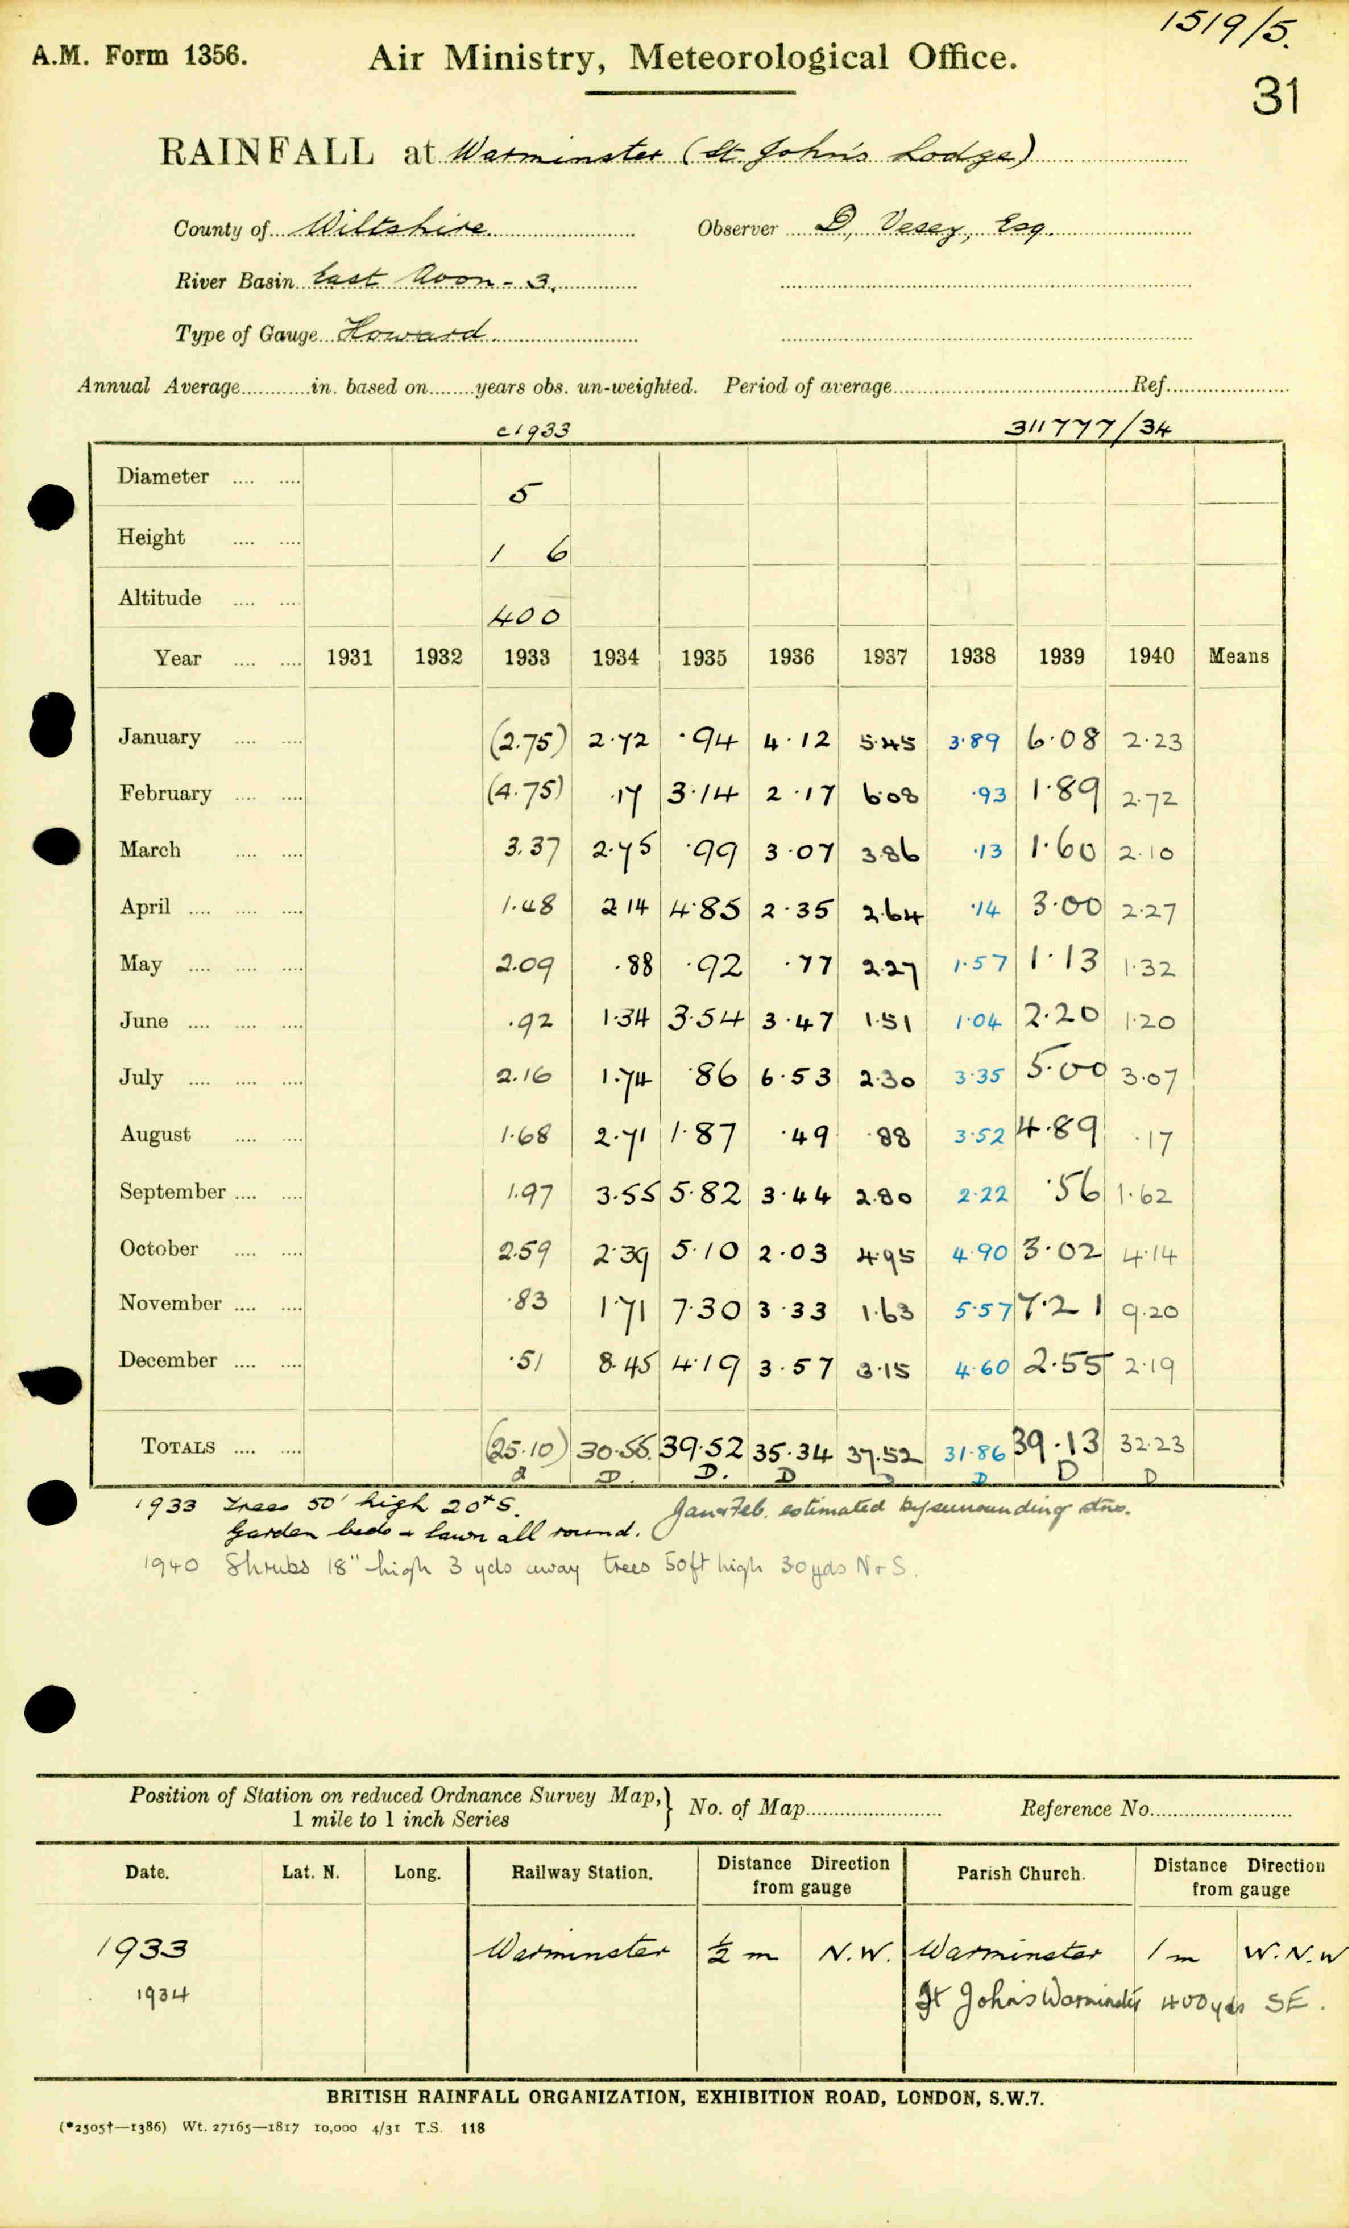 1519/5.
A.M. Form 1356. Air Ministry, Meteorological Office.
31
RAINFALL at Warminster (St. John's Lodge)
County of Wiltshire. Observer D. Vesey, Esq.
River Basin East Avon - 3.
Type of Gauge Howard.
Annual Average............in. based on........years obs. un-weighted. Period of average..........Ref..........
c1933 311777/34
Diameter .... .... 5
Height .... .... 1 6
Altitude .... .... 400
Year .... .... 1931 1932 1933 1934 1935 1936 1937 1938 1939 1940 Means
January .... .... (2.75) 2.72 .94 4.12 5.45 3.89 6.08 2.23
February .... .... (4.75) .17 3.14 2.17 6.08 .93 1.89 2.72
March .... .... 3.37 2.75 .99 3.07 3.86 .13 1.60 2.10
April .... .... .... 1.48 2 14 4.85 2.35 2.64 .14 3.00 2.27
May .... .... .... 2.09 .88 .92 .77 2.27 1.57 1.13 1.32
June .... .... .... .92 1.34 3.54 3.47 1.51 1.04 2.20 1.20
July .... .... .... 2.16 1.74 .86 6.53 2.30 3.35 5.00 3.07
August .... .... 1.68 2.71 1.87 .49 .88 3.52 4.89 .17
September .... .... 1.97 3.55 5.82 3.44 2.80 2.22 .56 1.62
October .... .... 2.59 2.39 5.10 2.03 4.95 4.90 3.02 4.14
November .... .... .83 1.71 7.30 3.33 1.63 5.57 7.21 9.20
December .... .... .51 8.45 4.19 3.57 3.15 4.60 2.55 2.19
TOTALS .... .... (25.10) 30.55. 39.52 35.34 37.52 31.86 39.13 32.23
D. D. D D D D D
1933 Trees 50' high 20x S. Jan & Feb. estimated by surrounding stns.
Garden beds & lawn all round.
1940 Shrubs 18" high 3 yds away trees 50ft high 30yds N & S.
Position of Station on reduced Ordnance Survey Map, } No. of Map.......... Reference No..........
1 mile to 1 inch Series
Date. Lat. N. Long. Railway Station. Distance Direction from gauge Parish Church. Distance Direction from gauge
1933 Warminster ½ m N.W. Warminster 1 m W.N.W
1934 St John's Warminster 400yds SE.
BRITISH RAINFALL ORGANIZATION, EXHIBITION ROAD, LONDON, S.W.7.
(*2505†—1386) Wt. 27165—1817 10,000 4/31 T.S. 118